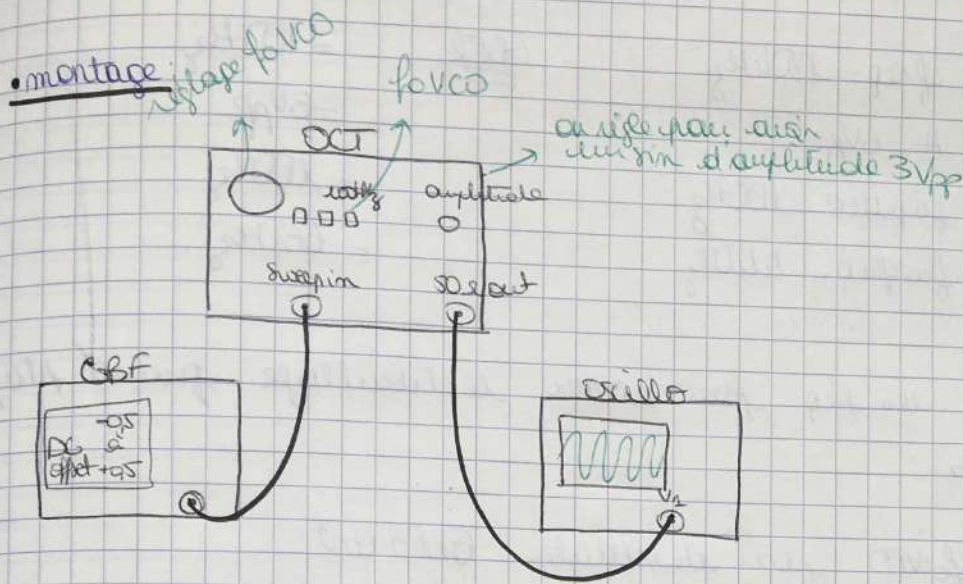 • montage
réglage foVCO
foVCO
OCT
on règle pour avoir
un sin d'amplitude 3Vpp
100kHz
amplitude
sweep in
50Ω out
GBF
-0,5
DC à
offset +0,5
oscillo
V1